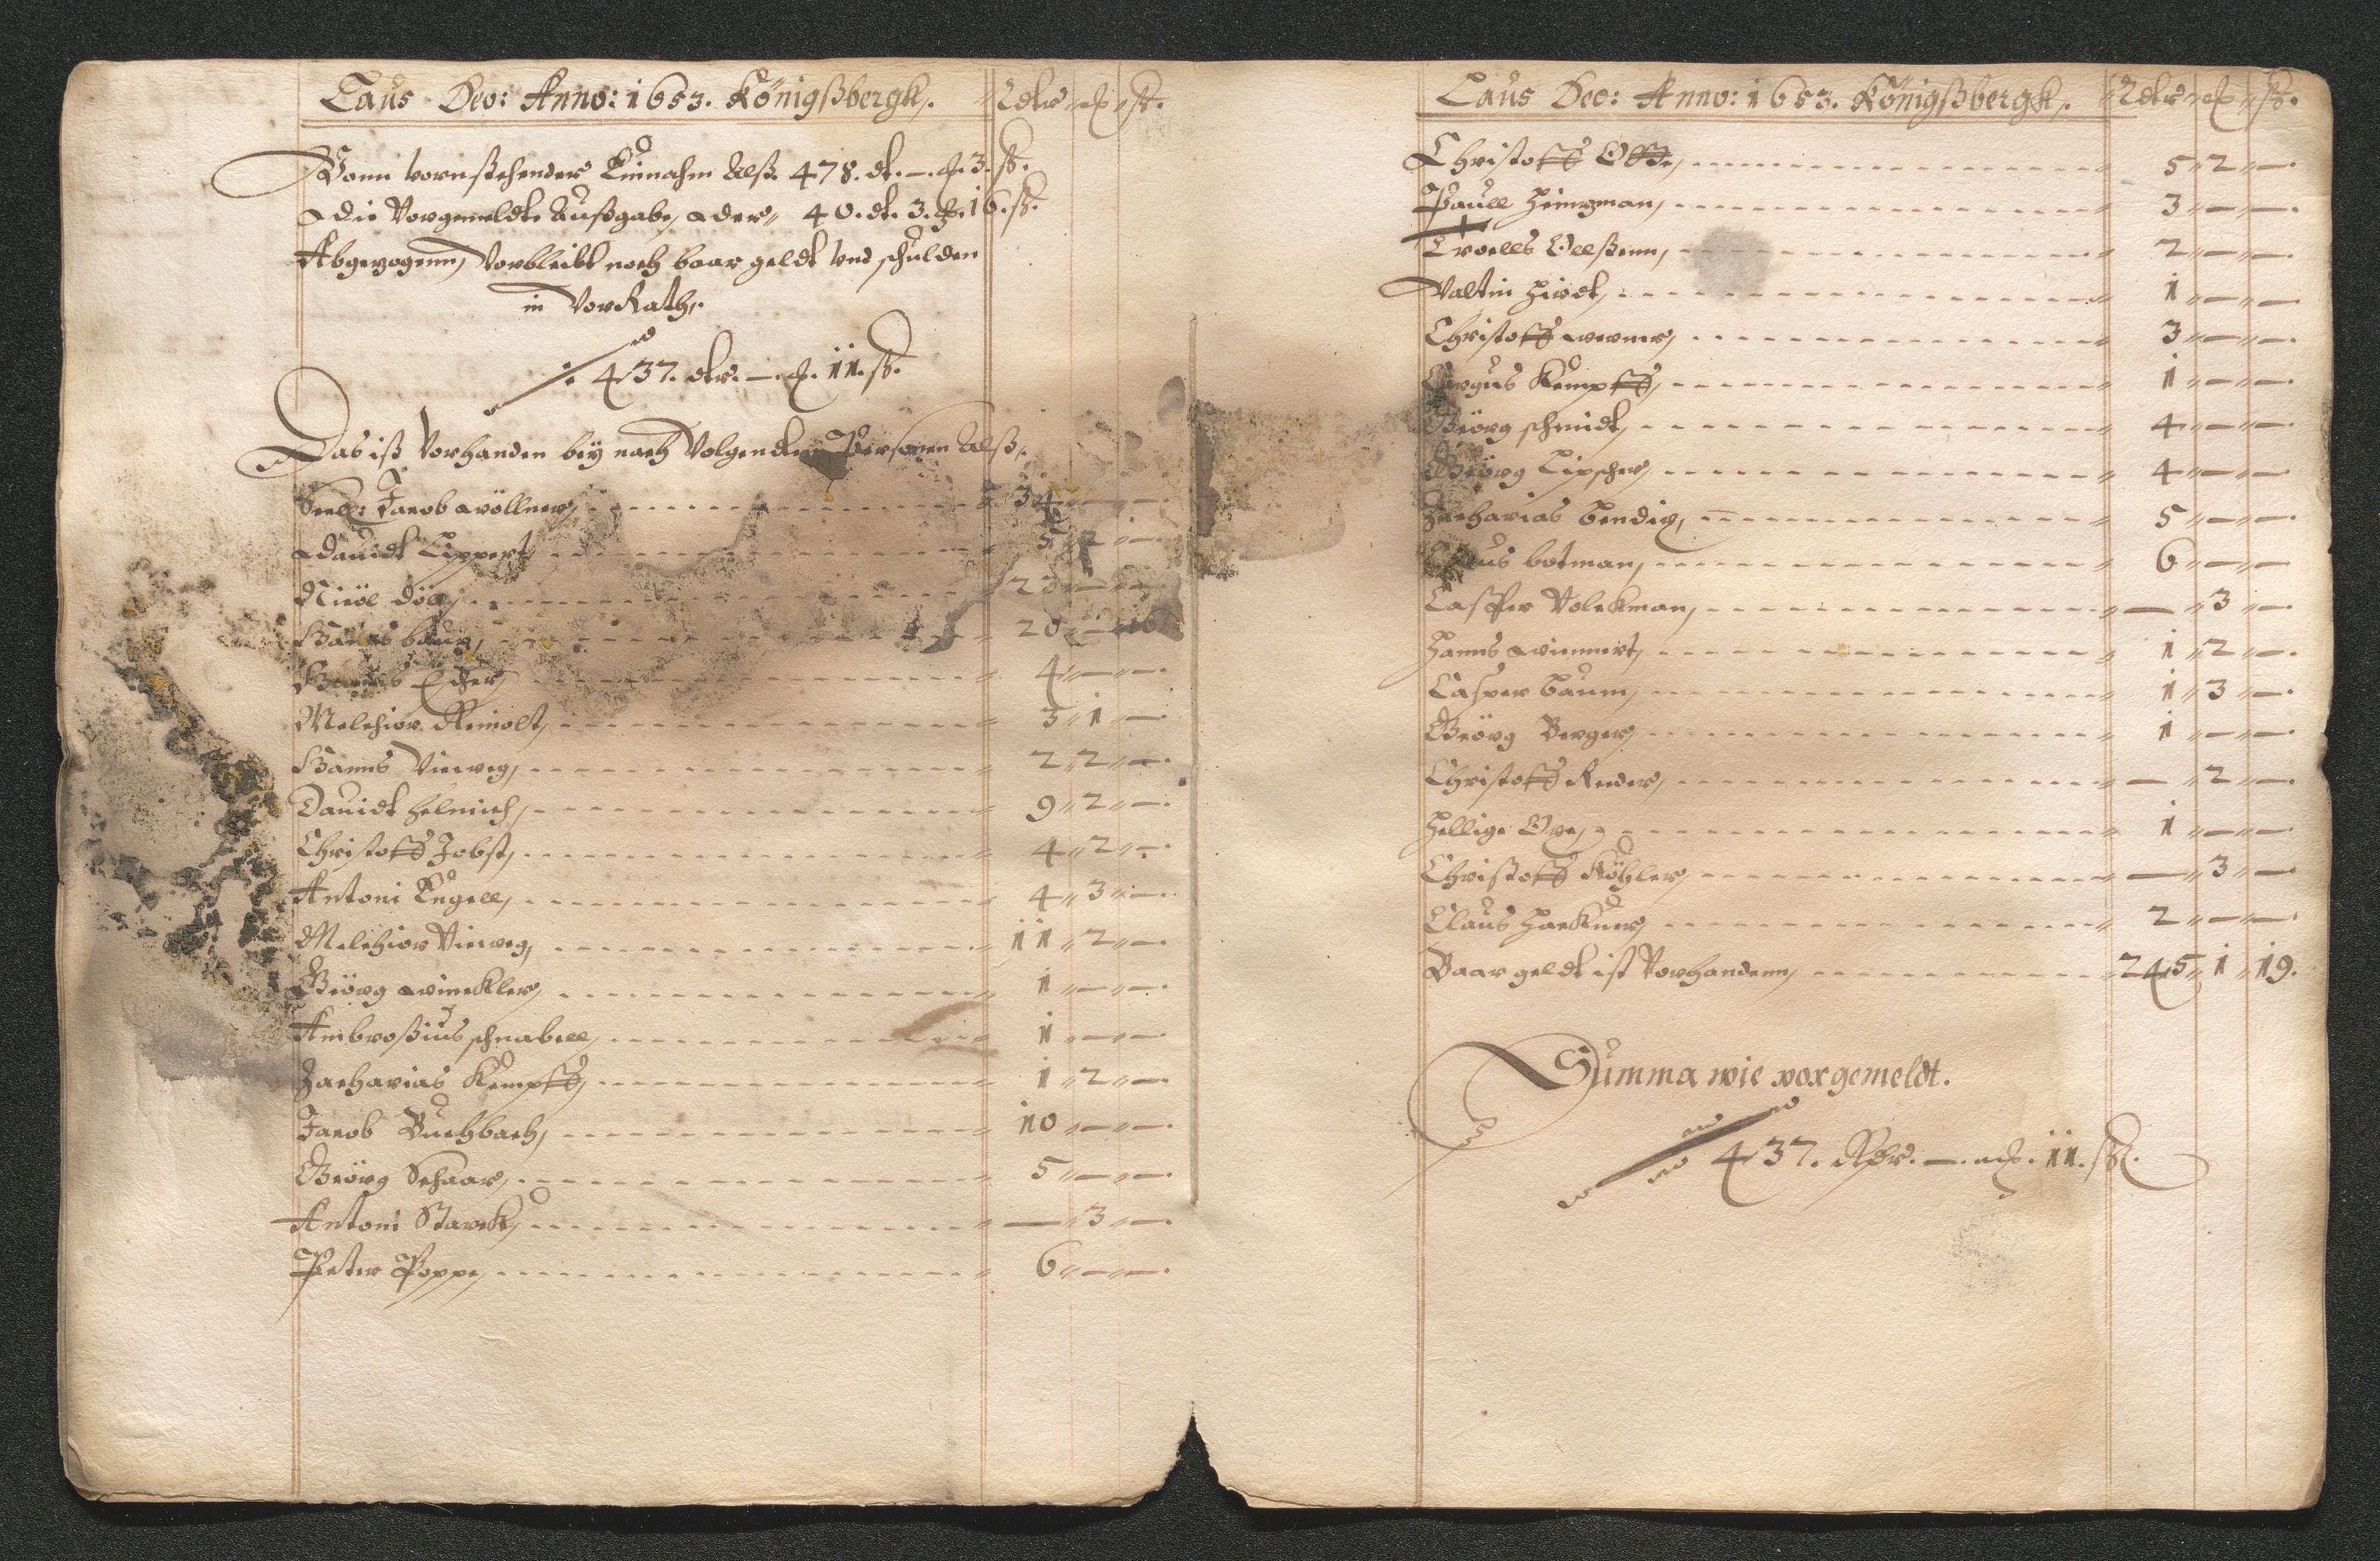 Laus Deo: Anno: 1653. Königßbergk. Rdlr ¸ ß.
Vonn vornstehender Einnahm Alß. 478. dl. — . 3. ß.
die Vorgemeldte Außgabe, der 40. dl. 3. 16. ß.
Abgezogenn, Vorbleibt noch baar geldt und schulden
in VorRath,
437. dlr. —. 11. ß.
Das ist Vorhanden bey nach Volgendten Personen Alß,
Seel: Jacob wöllner, 34 — —.
Davidt Lippert 5 2 —.
Nicol
Hanns 20 — 16
4 — —.
Melchior Reinolt, 3 1 —.
Hanns Vieweg, 2 2 —.
Davidt Helmich, 9 2 —.
Christoff Jobst, 4 2 —.
Antoni Kugell, 4 3 —.
Melchior Vieweg, 11 2 —.
Geörg winckler, 1 — —.
Ambrosius schnabell, 1 — —.
Zacharias Kempff, 1 2 —.
Jacob Buchbach, 10 — —.
Geörg Schaar, 5 — —.
Antoni Starck, — 3 —.
Peter Poppe, 6 — —.
Laus Deo: Anno: 1653. Königßbergk. Rdlr ß.
Christoff 5 2 —.
Paull Heintzman, 3 — —.
Troells Ollßenn, 2 — —.
Valtin Hirdt, 1 — —.
Christoff werner, 3 — —.
Kempff, 1 — —.
Geörg schmidt, 4 — —.
Geörg Lipscher, 4 — —.
Zacharias Bendix, 5 — —.
Claus botman, 6 — —.
Casper Volckman, — 3 —.
Hanns wimmert, 1 2 —.
Casper Baum, 1 3 —.
Geörg Berger, 1 — —.
Christoff Reder, — 2 —.
Hellige Ore, 1 — —.
Christoff Köhler, — 3 —
Claus Hackner, 2 — —.
Baar geldt ist Vorhandenn, 245 1 19.
Summa wie vorgemeldt.
437. Rdr. —. 11. ß.